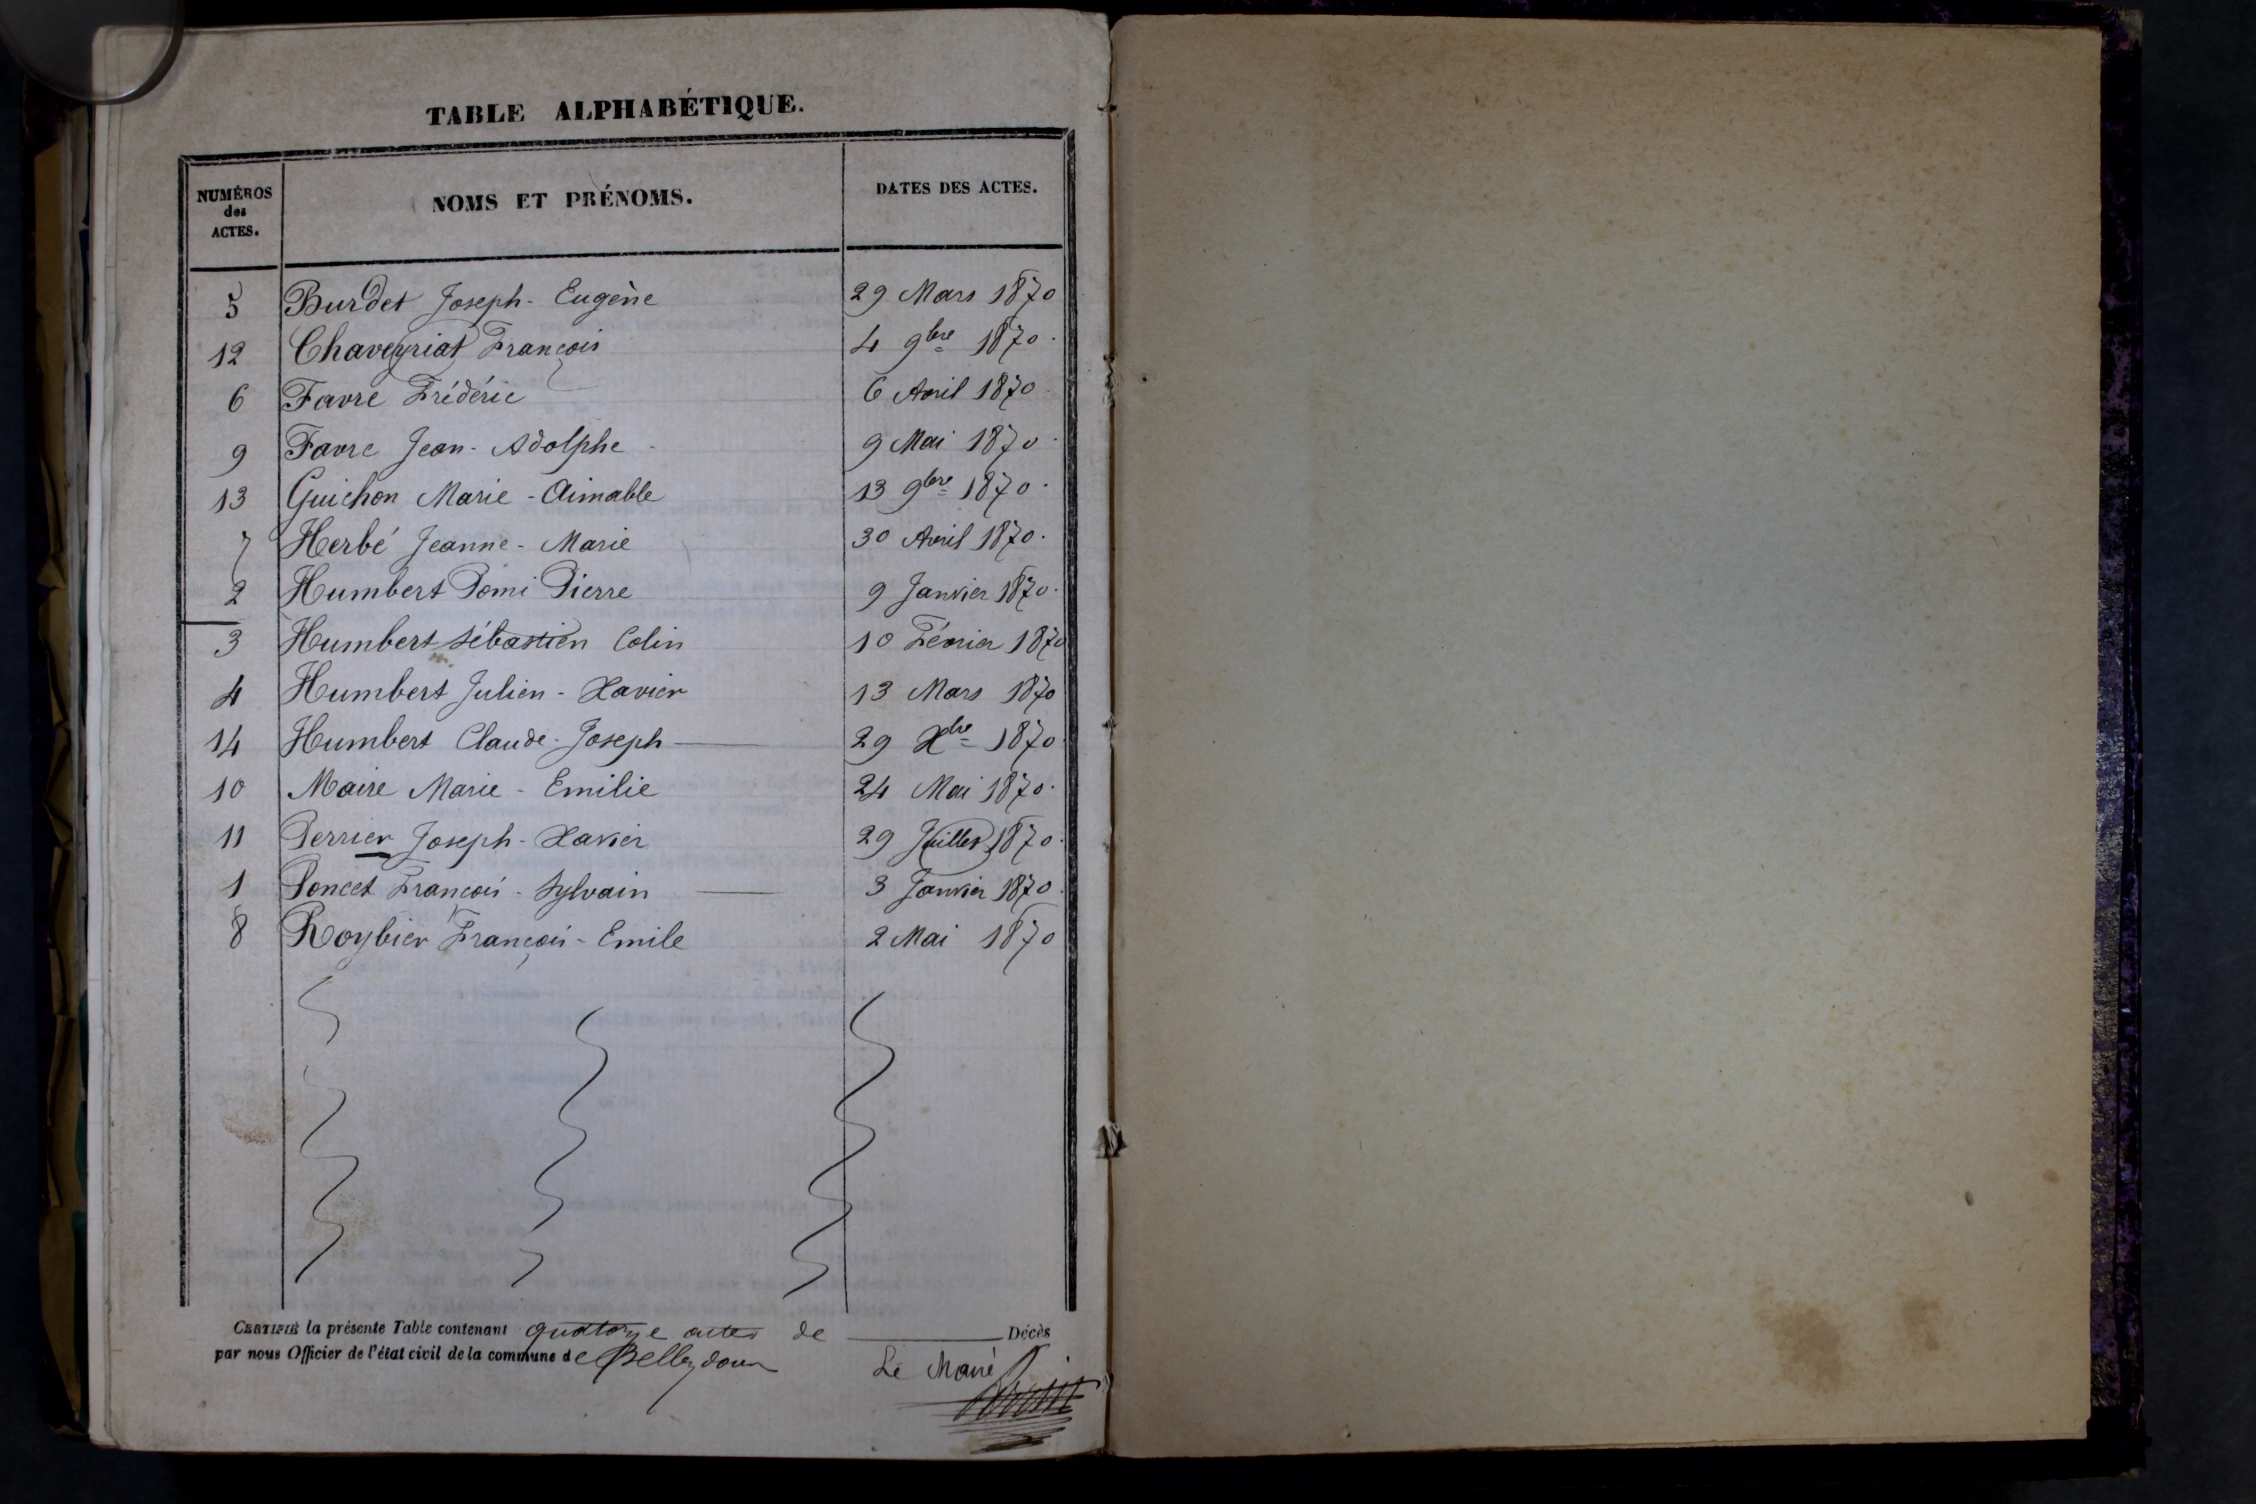 TABLE ALPHABÉTIQUE.
NUMÉROS des ACTES. NOMS ET PRÉNOMS. DATES DES ACTES.
5 Burdet Joseph-Eugène 29 Mars 1870
12 Chaveyriat François 4 9bre 1870.
6 Favre Frédéric 6 Avril 1870
9 Favre Jean-Adolphe 9 Mai 1870.
13 Guichon Marie-Aimable 13 9bre 1870.
7 Herbé Jeanne-Marie 30 Avril 1870.
2 Humbert Pierre 9 Janvier 1870.
3 Humbert Sébastien Colin 10 Février 1870
4 Humbert Julien-Xavier 13 Mars 1870
14 Humbert Claude-Joseph 29 Xbre 1870.
10 Maire Marie-Emilie 24 Mai 1870.
11 Perrier Joseph-Xavier 29 Juillet 1870.
1 Poncet François-Sylvain 3 Janvier 1870.
8 Roybier François-Emile 2 Mai 1870
CERTIFIÉ la présente Table contenant quatorze actes de Décès
par nous Officier de l'état civil de la commune de Belleydoux
Le Maire